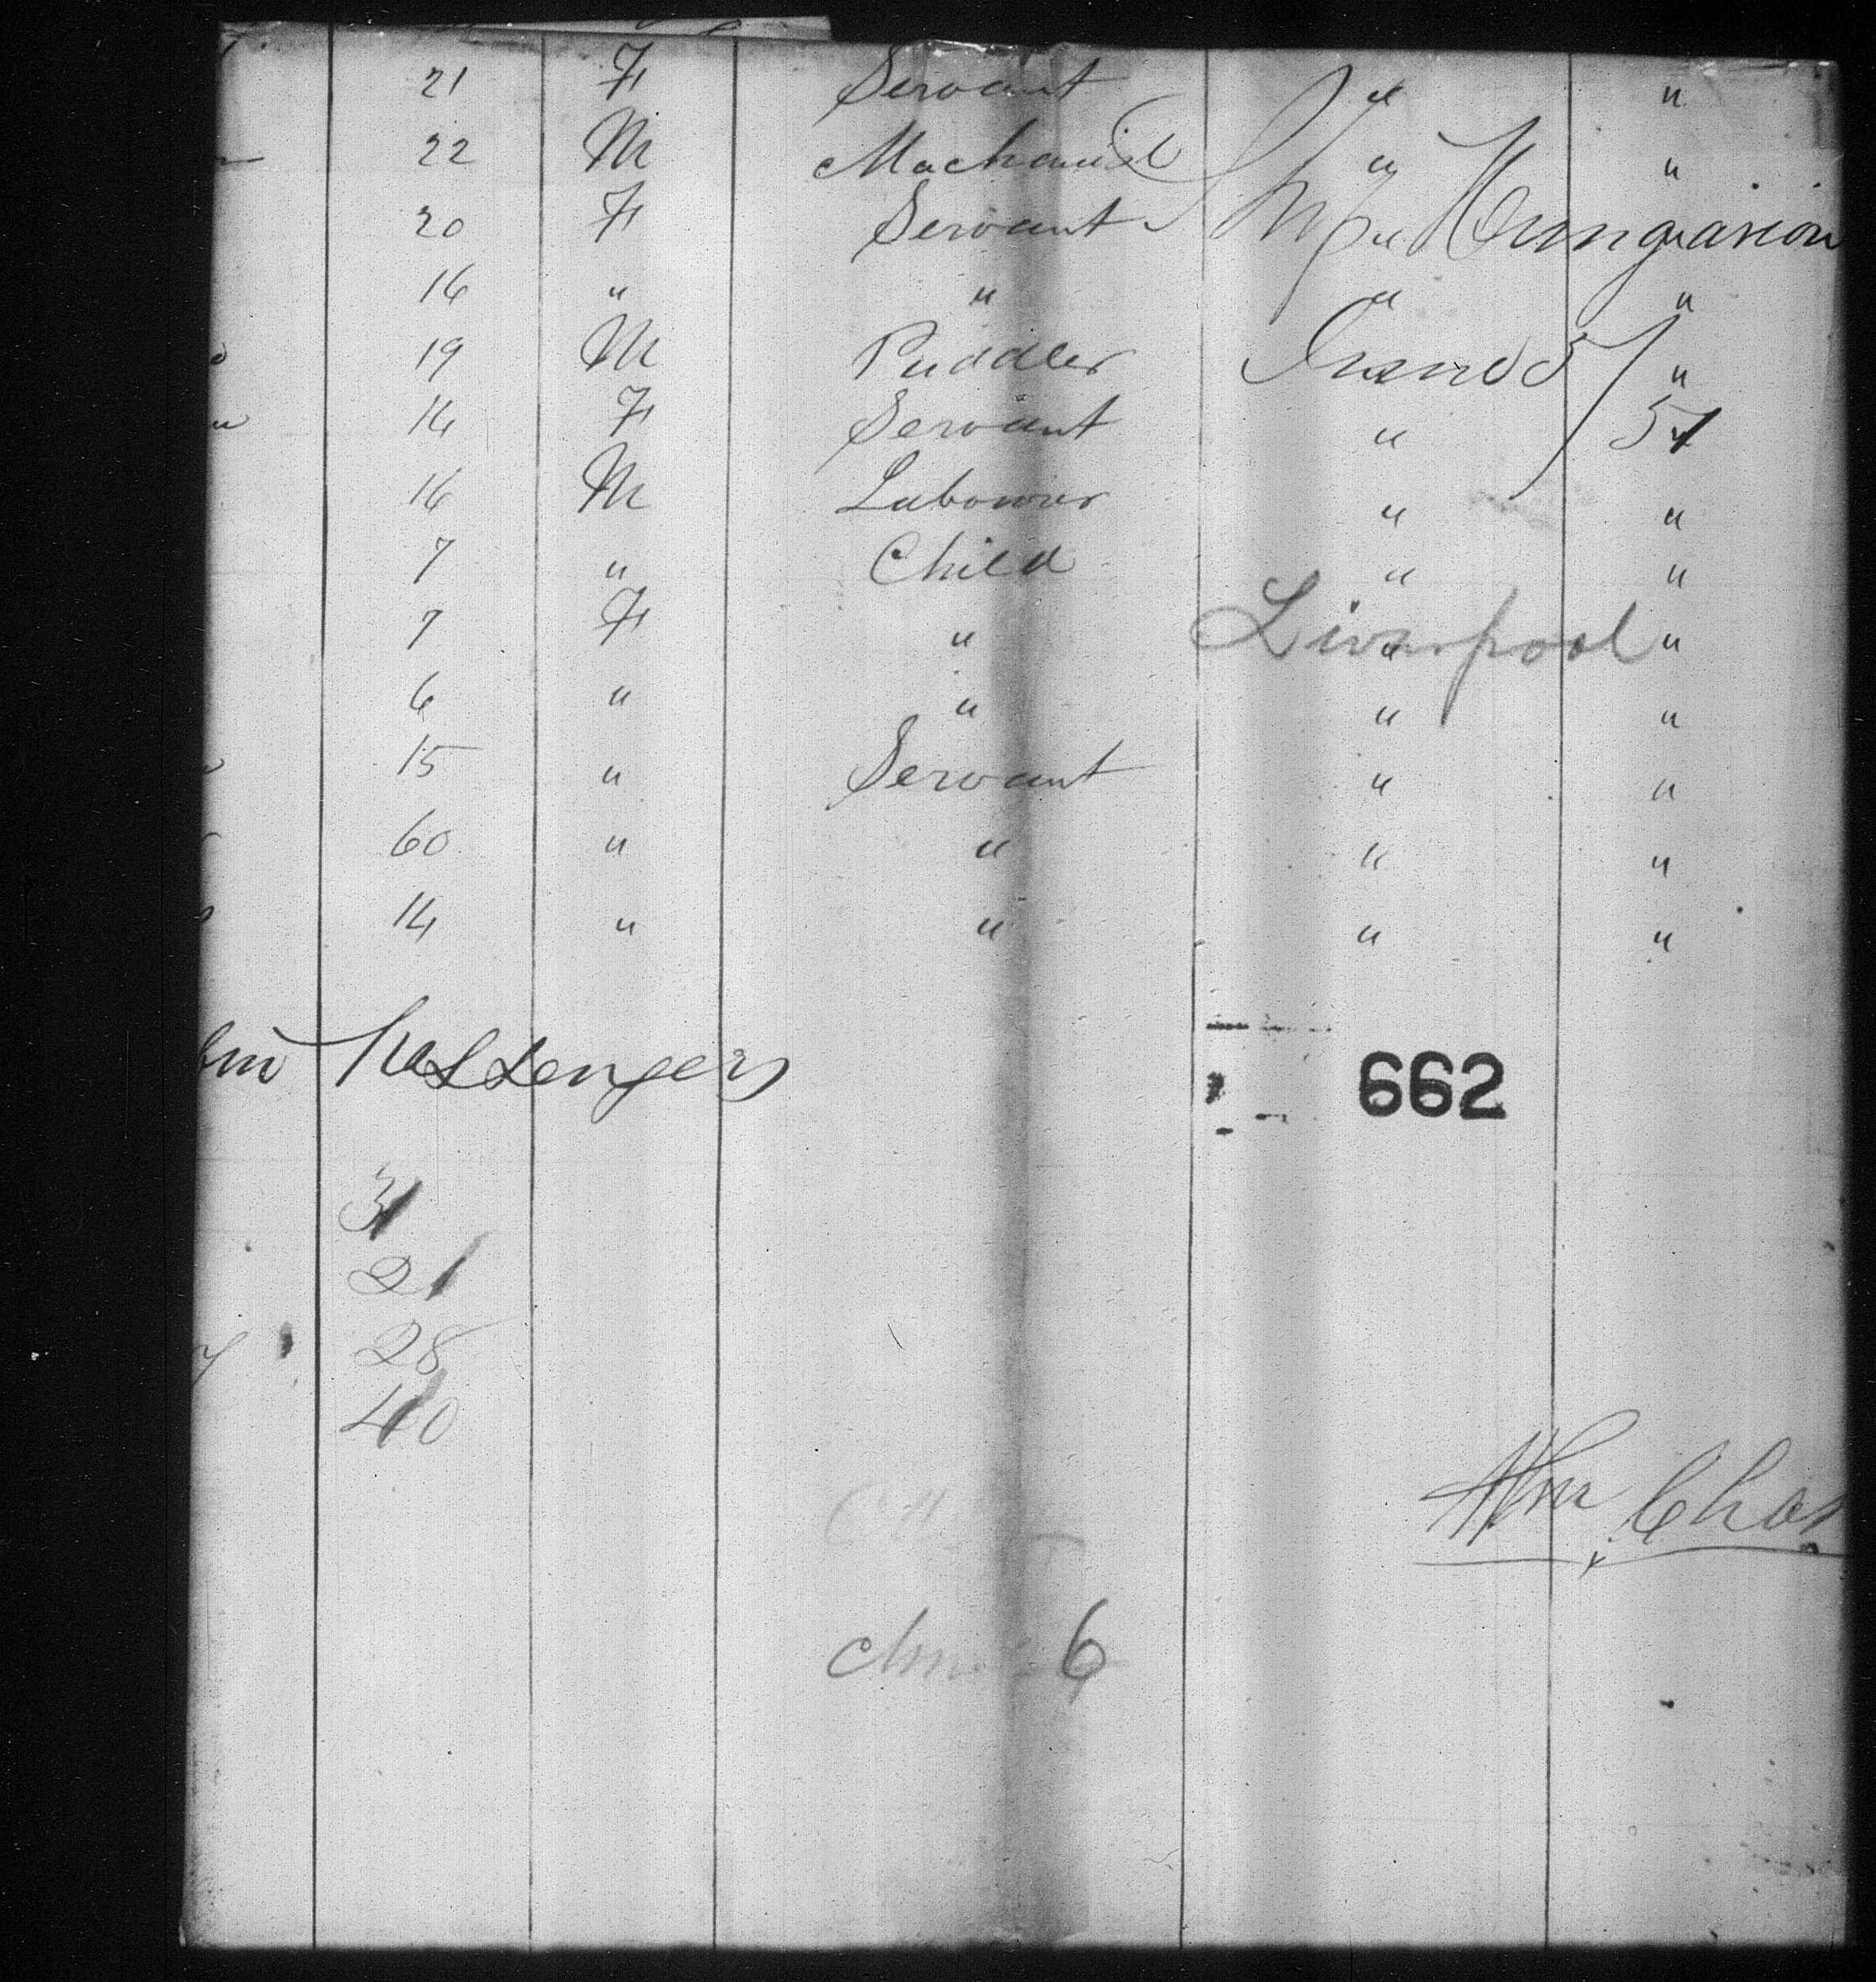 21 F Servant " "
22 M Machanic " "
20 F Servant " "
Ship Hungarian
16 " " " "
19 M Puddler "
14 F Servant " "
51
16 M Labourer " "
7 " Child " "
7 F " " "
Liverpool
6 " " " "
15 " Servant " "
60 " " " "
14 " " " "
Passengers
662
31
21
28
40
Wm Chas
6